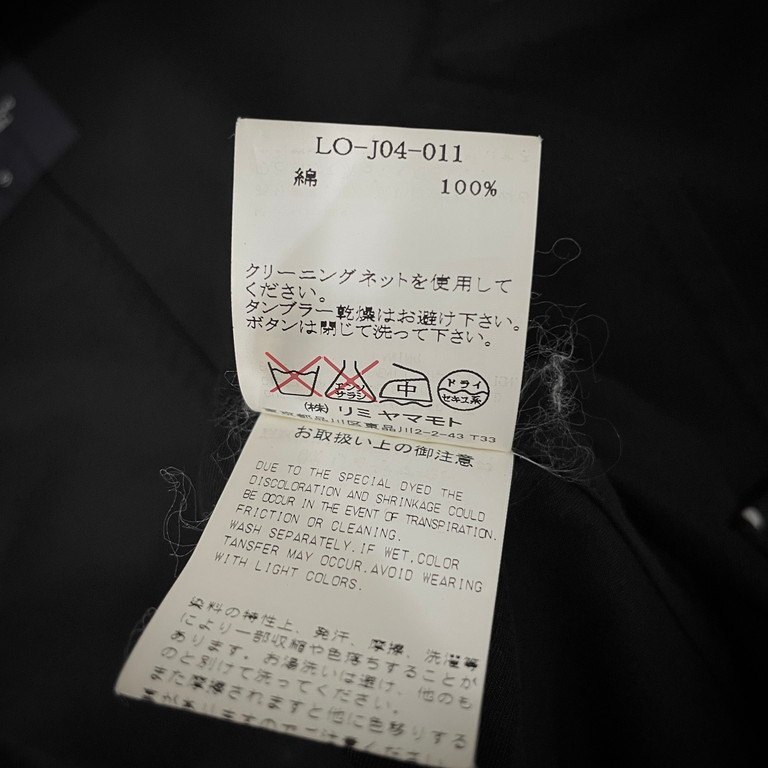 LO-J04-011
綿 100%
クリーニングネットを使用して
ください。
タンブラー乾燥はお避け下さい。
ボタンは閉じて洗って下さい。
エンソ
サラシ
中
ドライ
セキユ系
(株) リミ ヤマモト
東京都品川区東品川2-2-43 T33
お取扱い上の御注意
DUE TO THE SPECIAL DYED THE
DISCOLORATION AND SHRINKAGE COULD
BE OCCUR IN THE EVENT OF TRANSPIRATION.
FRICTION OR CLEANING.
WASH SEPARATELY.IF WET,COLOR
TANSFER MAY OCCUR.AVOID WEARING
WITH LIGHT COLORS.
染料の特性上、発汗、摩擦、洗濯等
により一部収縮や色落ちすることが
あります。お湯洗いは避け、他のも
のと別けて洗ってください。
また摩擦されますと他に色移りする
事がありますのでご注意ください